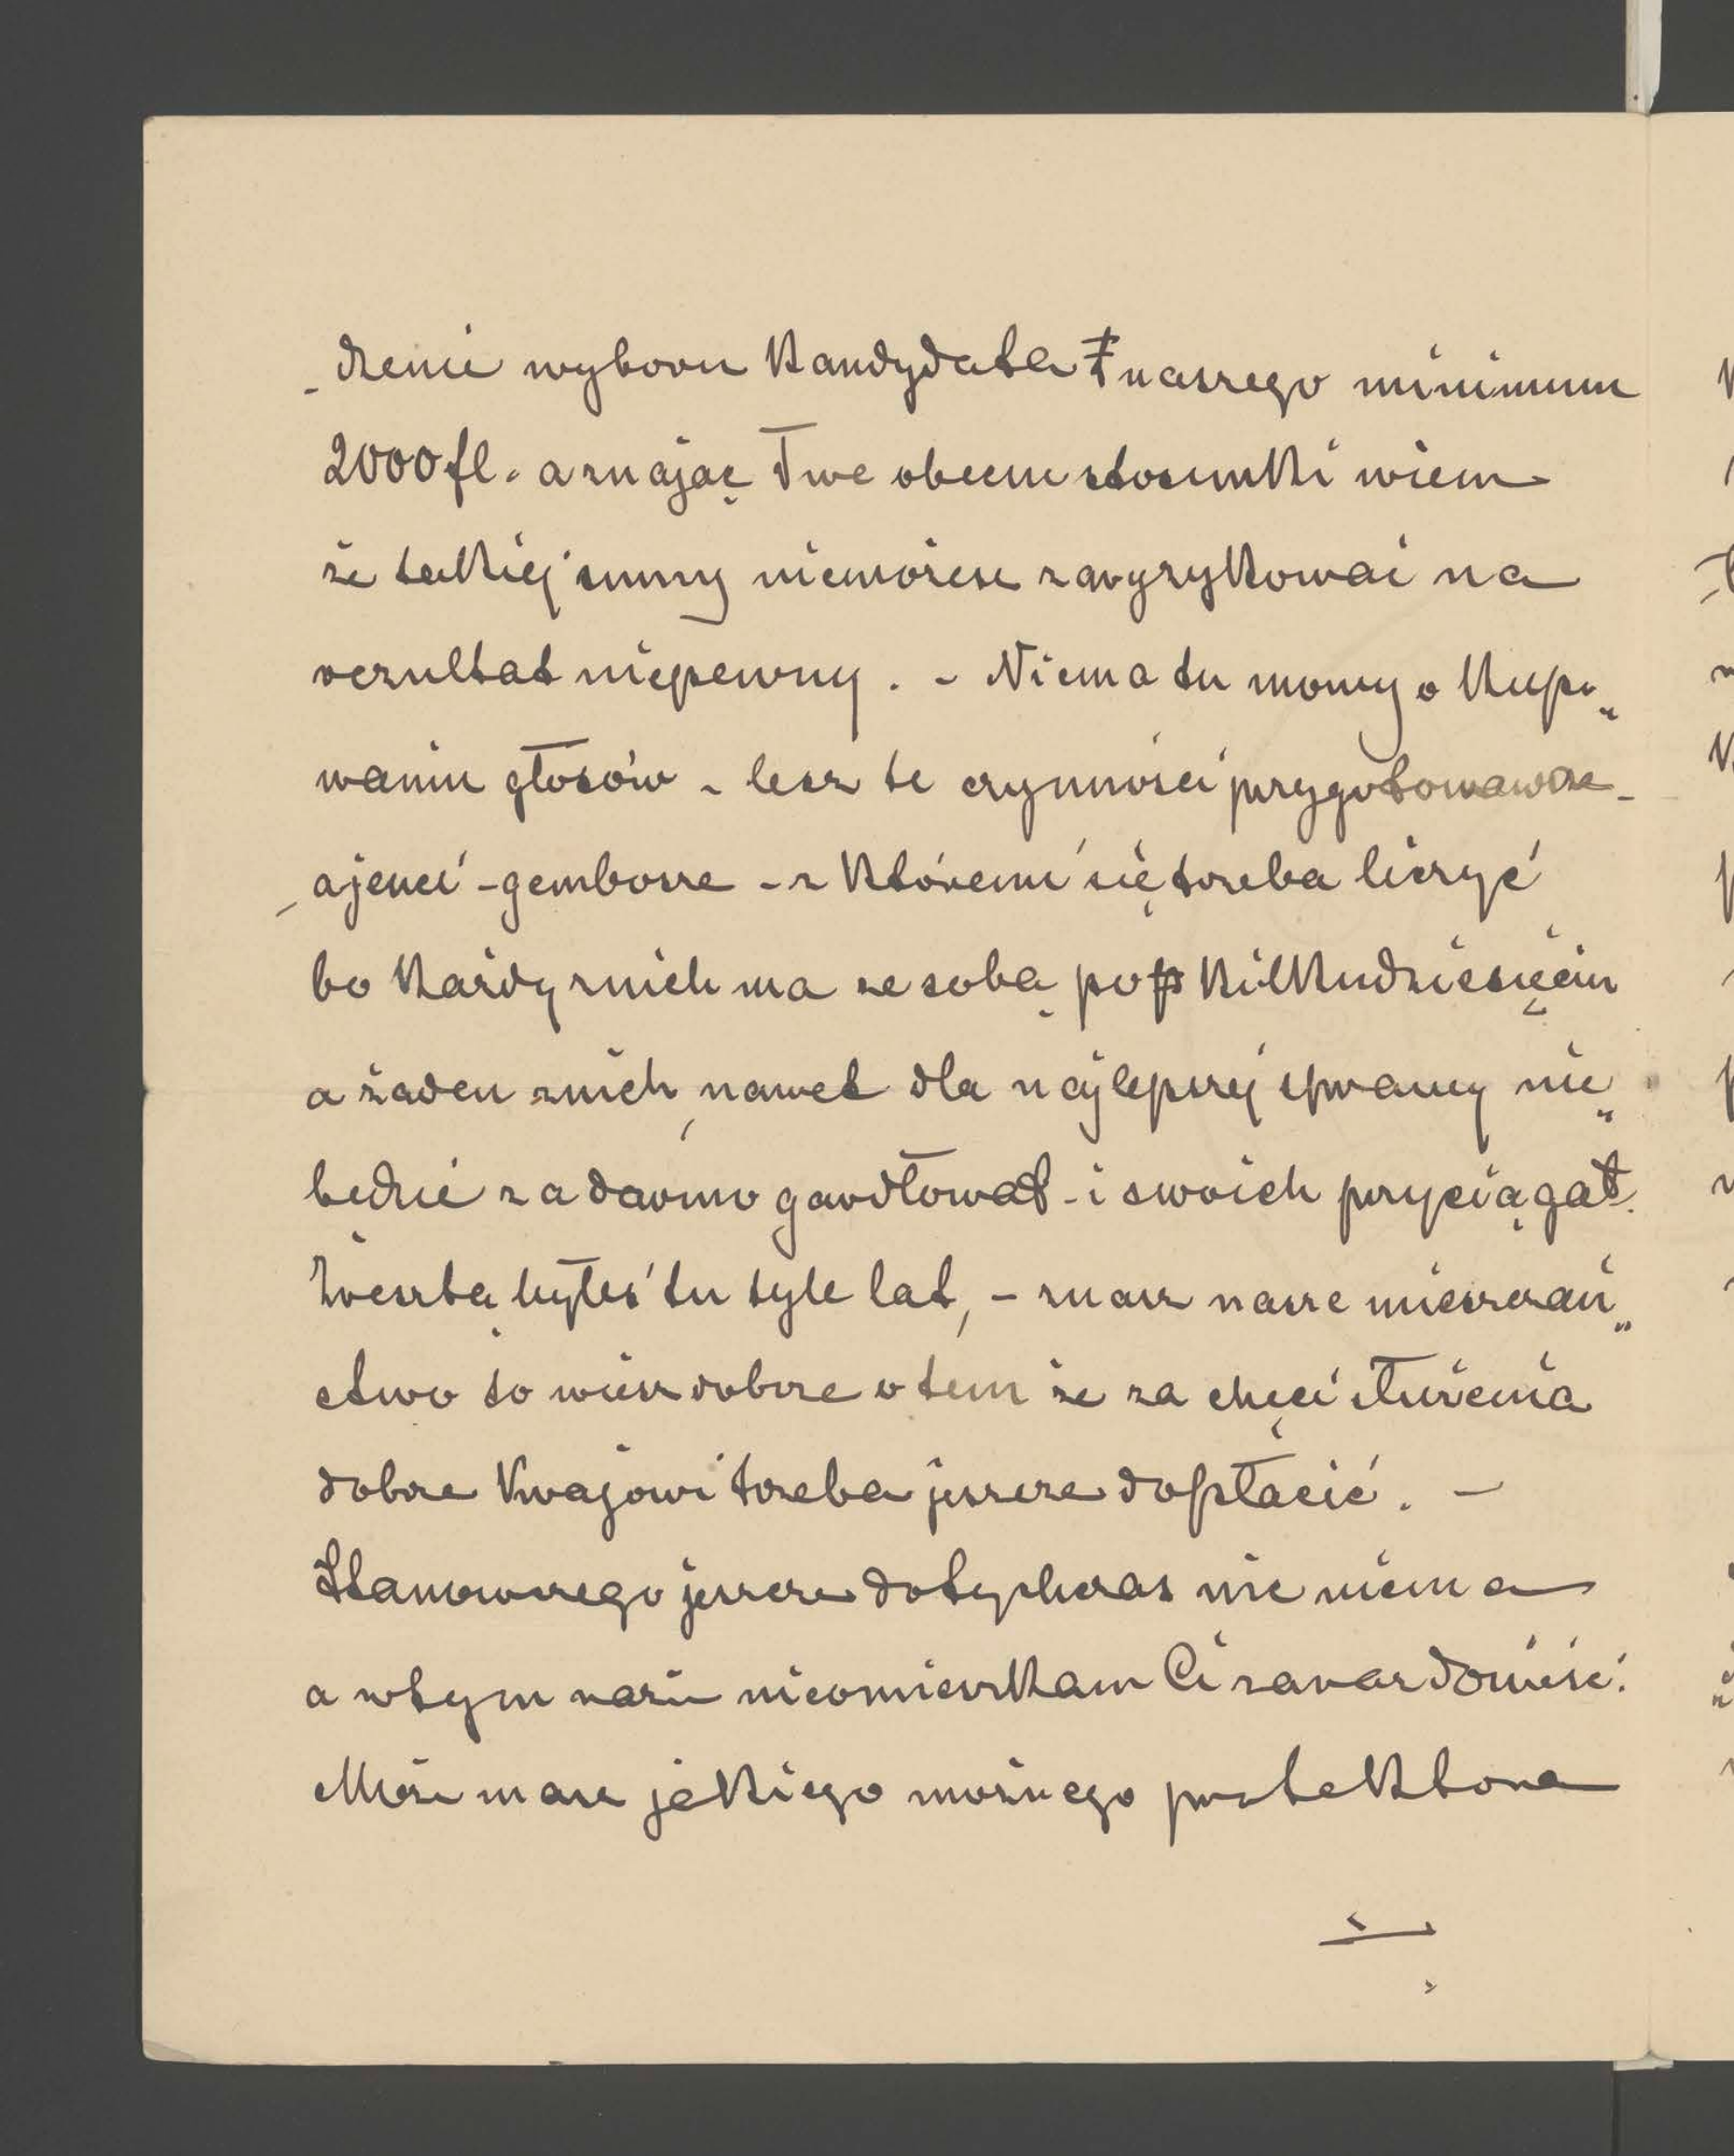 -dzenie wyboru Kandydata naszego minimum
2000 fl. a znając Twe obecne stosunki wiem
że takiej sumy niemożesz zaryzykować na
rezultat niepewny. - Niema tu mowy o kupo„
waniu głosów - lecz te czynności przygotowawcze -
ajenci - gembosze - z któremi się trzeba liczyć
bo każdy znich ma ze sobą po kilkudziesięciu
a żaden znich, nawet dla najlepszej sprawy nie„
będzie za darmo gardłował - i swoich przyciągał.
Zresztą byłeś tu tyle lat, - znasz nasze mieszczań„
stwo to wiesz dobrze o tem że za chęci służenia
dobrze Krajowi trzeba jeszcze dopłacić. -
Stanowczego jeszcze dotychczas nic niema
a wtym razie nieomieszkam Ci zaraz donieść.
Może masz jakiego możnego protektora